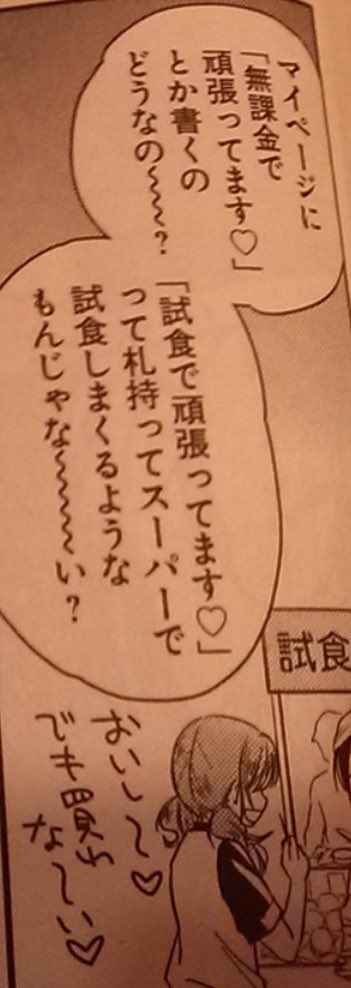 マイページに
「無課金で
頑張ってます♡」
とか書くの
どうなの〜〜〜?
「試食で頑張ってます♡」
って札持ってスーパーで
試食しまくるような
もんじゃな〜〜〜〜い?
試食
おいし〜♡
でも買わ
な〜い♡